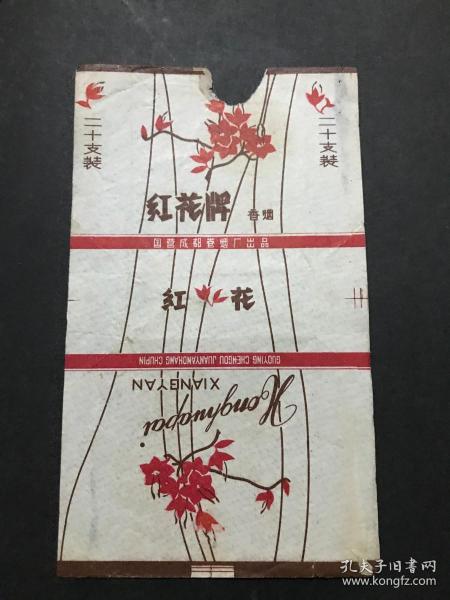 二十支装
二十支装
红花牌 香烟
国营成都卷烟厂出品
红花
GUOYING CHENGDU JUANYANCHANG CHUPIN
XIANGYAN
Honghuapai
孔夫子旧书网
www.kongfz.com